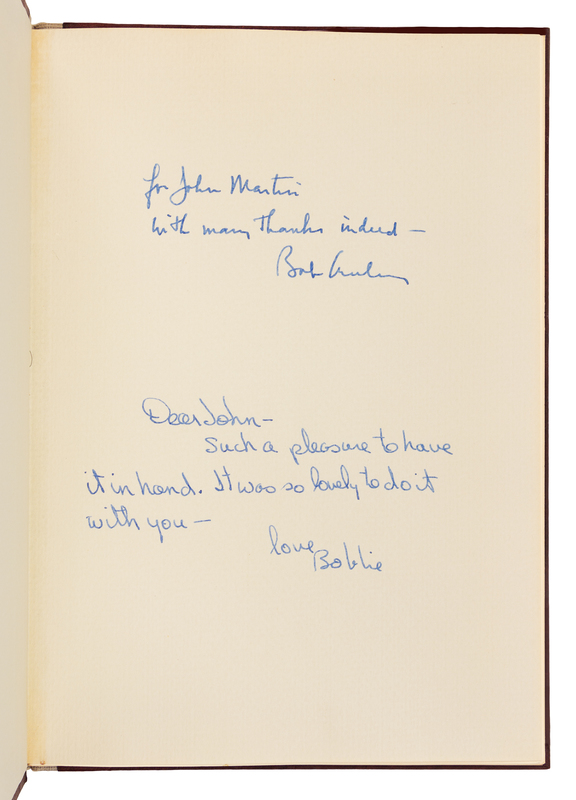 for John Martin
with many thanks indeed —
Bob
Dear John —
Such a pleasure to have
it in hand. It was so lovely to do it
with you —
love
Bobbie